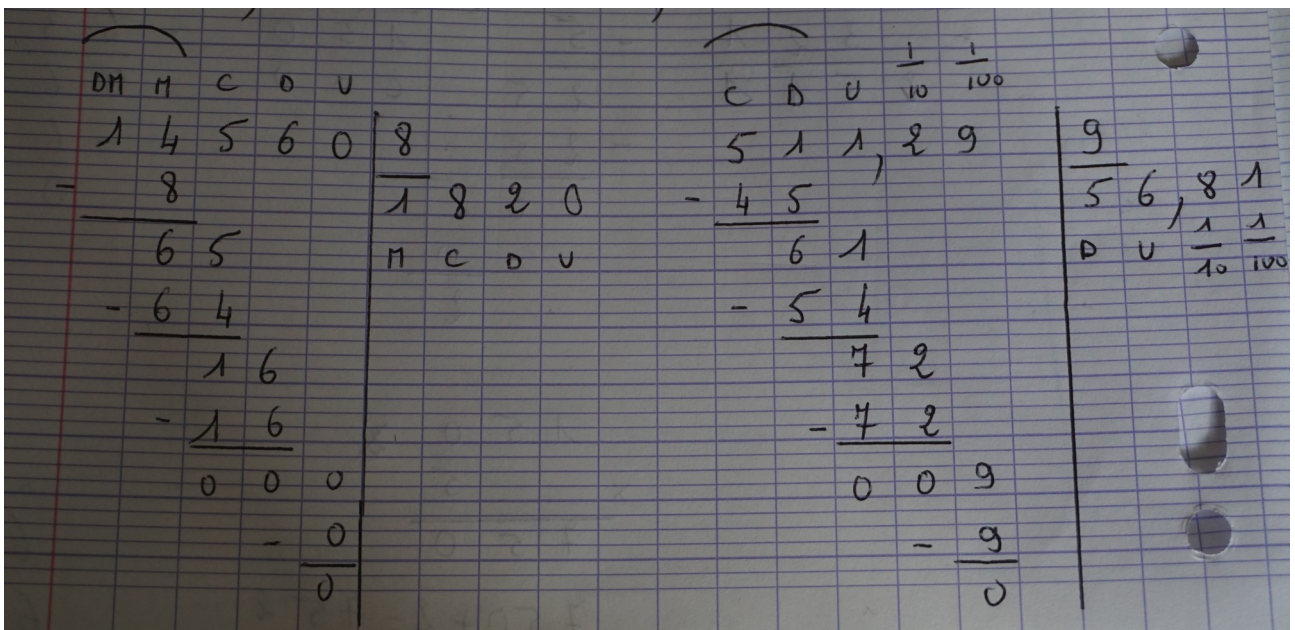 DM M C D U
1 4 5 6 0 8
- 8 1 8 2 0
6 5 M C D U
- 6 4
1 6
- 1 6
0 0 0
- 0
0
C D U 1/10 1/100
5 1 1, 2 9 9
- 4 5 5 6, 8 1
6 1 D U 1/10 1/100
- 5 4
7 2
- 7 2
0 0 9
- 9
0